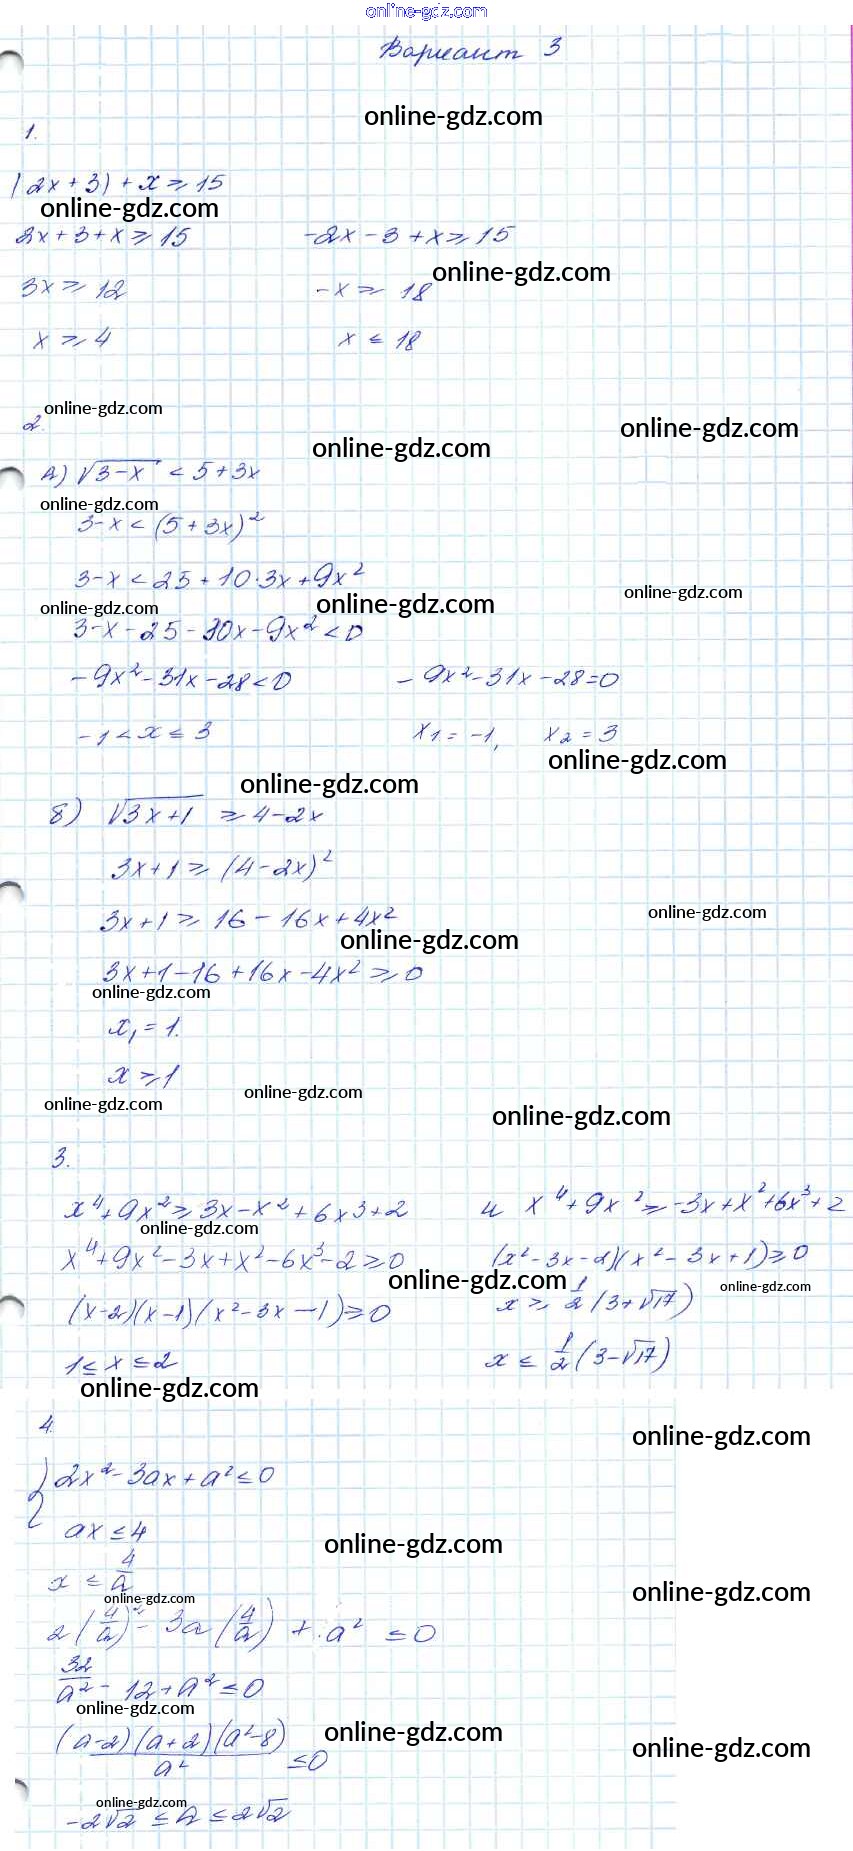 online-gdz.com
Вариант 3
online-gdz.com
1.
|2x+3|+x≥15
online-gdz.com
2x+3+x≥15 -2x-3+x≥15
online-gdz.com
3x≥12 -x≥18
x≥4 x≤18
online-gdz.com
2.
online-gdz.com
online-gdz.com
А) √3-x < 5+3x
online-gdz.com
3-x<(5+3x)²
3-x<25+10·3x+9x²
online-gdz.com
online-gdz.com online-gdz.com
3-x-25-30x-9x²<0
-9x²-31x-28<0 -9x²-31x-28=0
-1<x≤3 x₁=-1, x₂=3
online-gdz.com
online-gdz.com
б) √3x+1 ≥4-2x
3x+1≥(4-2x)²
3x+1≥16-16x+4x²
online-gdz.com
online-gdz.com
3x+1-16+16x-4x²≥0
online-gdz.com
x₁=1.
x≥1
online-gdz.com
online-gdz.com
online-gdz.com
3.
x⁴+9x²≥3x-x²+6x³+2 и x⁴+9x²≥-3x+x²+6x³+2
online-gdz.com
x⁴+9x²-3x+x²-6x³-2≥0 (x²-3x-2)(x²-3x+1)≥0
online-gdz.com online-gdz.com
(x-2)(x-1)(x²-3x-1)≥0 x≥1/2(3+√17)
1≤x≤2 x≤1/2(3-√17)
online-gdz.com
4.
online-gdz.com
{2x²-3ax+a²≤0
ax≤4
online-gdz.com
x≤4/a
online-gdz.com
online-gdz.com
2(4/a)²-3a(4/a)+a²≤0
32/a²-12+a²≤0
online-gdz.com
online-gdz.com
(a-2)(a+2)(a²-8)/a²≤0
online-gdz.com
online-gdz.com
-2√2≤a≤2√2